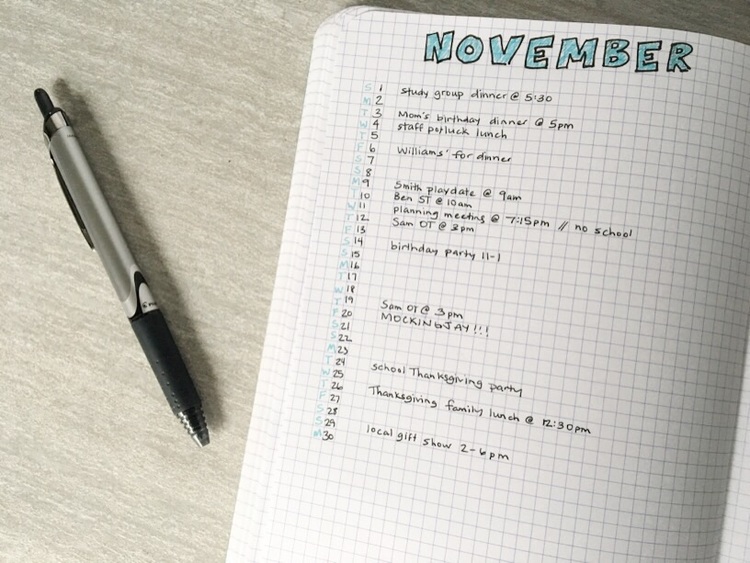 NOVEMBER
S 1 study group dinner @ 5:30
M 2
T 3 Mom's birthday dinner @ 5pm
W 4 staff potluck lunch
T 5
F 6 Williams' for dinner
S 7
S 8
M 9 Smith playdate @ 9am
T 10 Ben ST @ 10am
W 11 planning meeting @ 7:15pm // no school
T 12 Sam OT @ 3pm
F 13
S 14 birthday party 11-1
S 15
M 16
T 17
W 18
T 19 Sam OT @ 3pm
F 20 MOCKINGJAY!!!
S 21
S 22
M 23
T 24 school Thanksgiving party
W 25
T 26 Thanksgiving family lunch @ 12:30pm
F 27
S 28
S 29 local gift show 2-6pm
M 30